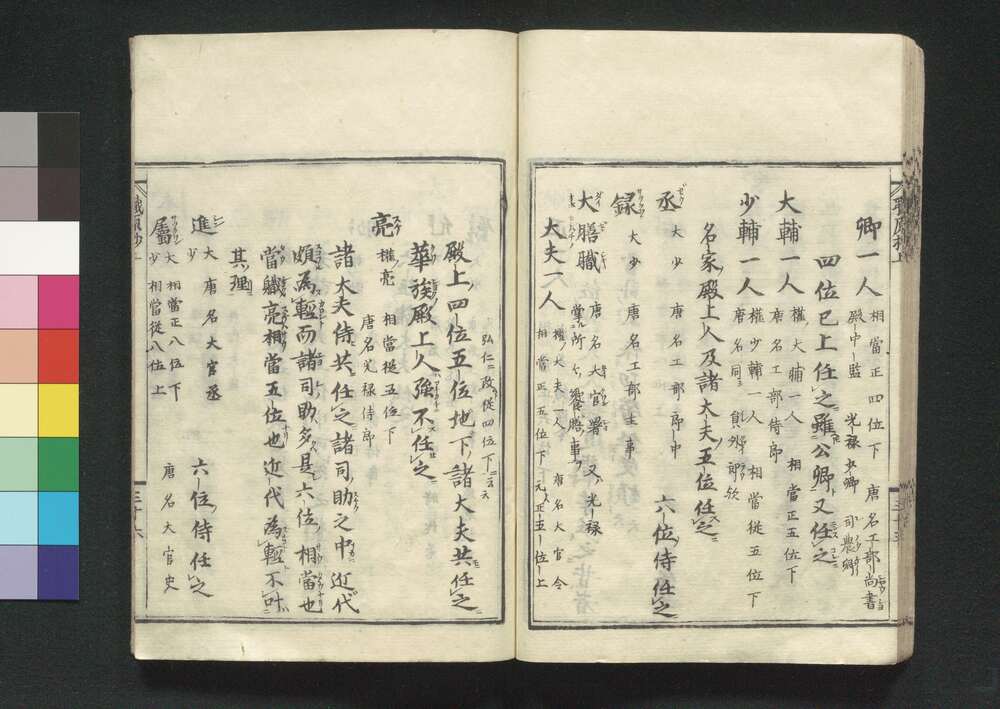 卿一人 相當正四位下 唐名工部尚書
殿中監 光禄少卿 司農卿
四位已上任之雖公卿又任之
大輔一人 權大輔一人 相當正五位下
唐名工部侍郎
少輔一人 權少輔一人 相當從五位下
唐名同 員外郎歟
名家殿上人及諸大夫五位任之
丞 大少 唐名工部郎中 六位侍任之
録 大少 唐名主事
大膳職 唐名大官署 又光禄
掌所々饗膳事
大夫一人 權大夫一人 唐名大官令
相當正五位下 元正五位上
弘仁 改從四位下云云
殿上四位五位地下諸大夫共任之
華族殿上人強不任之
亮 權亮 相當從五位下
唐名光禄侍郎
諸大夫侍共任之諸司助之中近代
頗爲輕而諸司助多是六位相當也
當職亮相當五位也近代爲輕不叶
其理
進 大少 唐名大官丞 六位侍任之
屬 大 相當正八位下 唐名大官史
少 相當從八位上
職原抄
三十六